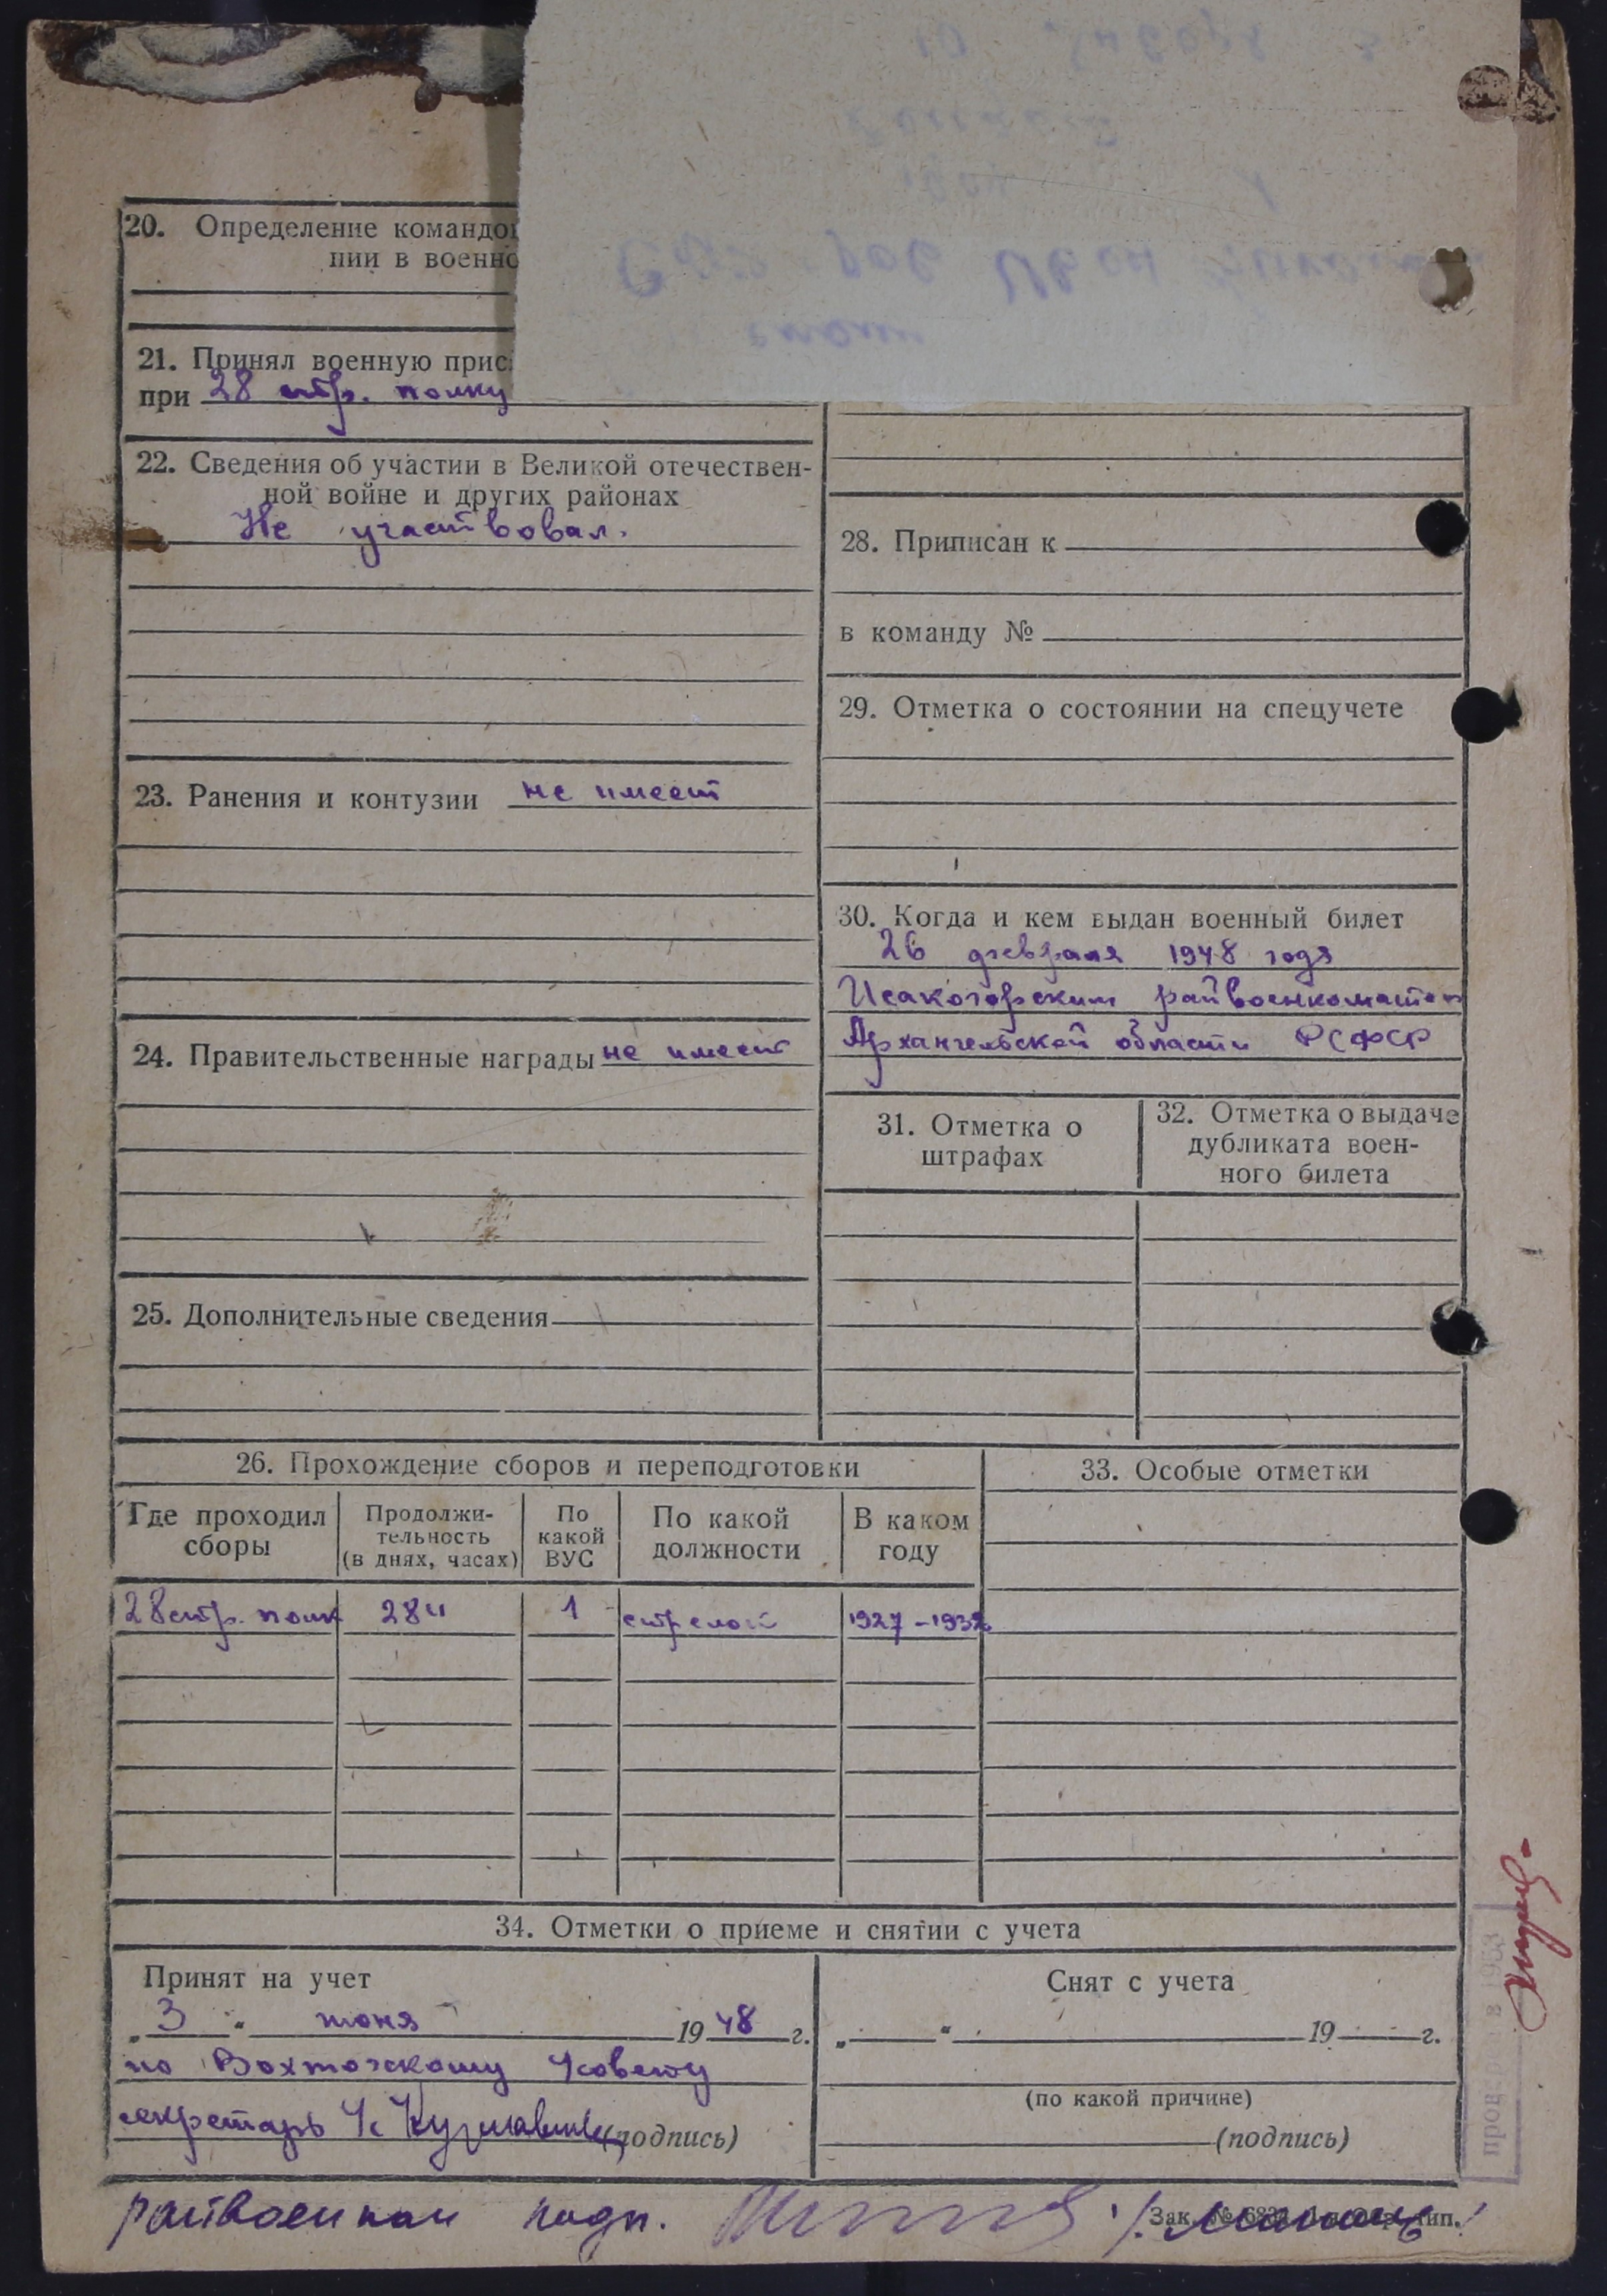 20. Определение командо
нии в военно
21. Принял военную прис
при 28 стр. полку
22. Сведения об участии в Великой отечествен-
ной войне и других районах
Не участвовал.
23. Ранения и контузии не имеет
24. Правительственные награды не имеет
25. Дополнительные сведения
28. Приписан к
в команду №
29. Отметка о состоянии на спецучете
30. Когда и кем выдан военный билет
26 февраля 1948 года
Исакогорским райвоенкоматом
Архангельской области РСФСР
31. Отметка о
штрафах
32. Отметка о выдаче
дубликата воен-
ного билета
26. Прохождение сборов и переподготовки
Где проходил
сборы
Продолжи-
тельность
(в днях, часах)
По
какой
ВУС
По какой
должности
В каком
году
28 стр. полк 284 1 стрелок 1927-1932
33. Особые отметки
34. Отметки о приеме и снятии с учета
Принят на учет
„3“ июня 1948 г.
по Вохтожскому с/совету
секретарь с/с (подпись)
Снят с учета
„ “ 19 г.
(по какой причине)
(подпись)
райвоенком подп.
Зак. № тип.